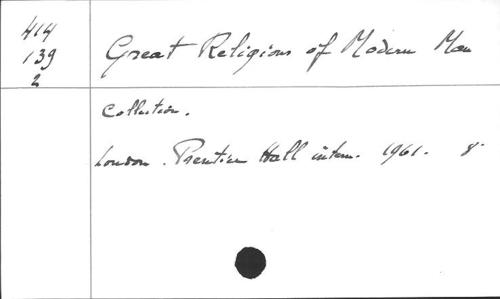 414
139
2
Great Religions of Modern Man
Collection.
London. Prentice Hall intern. 1961. 8°